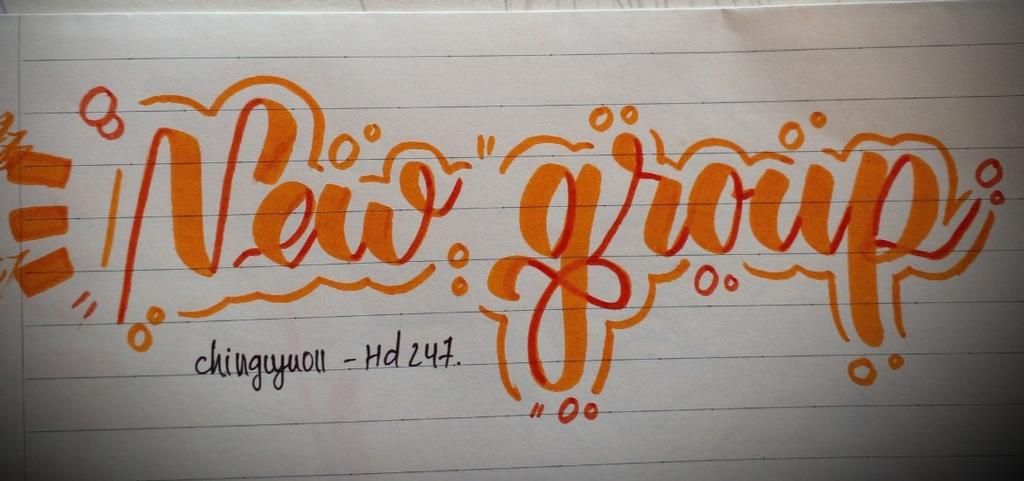 New group
chinguyuou - Hd 247.